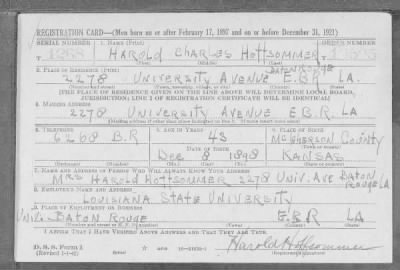 REGISTRATION CARD—(Men born on or after February 17, 1897 and on or before December 31, 1921)
SERIAL NUMBER 1. NAME (Print) ORDER NUMBER
HAROLD CHARLES HOTTSOMMER
(First) (Middle) (Last)
2. PLACE OF RESIDENCE (Print)
BATON ROUGE
2278 UNIVERSITY AVENUE E.B.R. LA.
(Number and street) (Town, township, village, or city) (County) (State)
[THE PLACE OF RESIDENCE GIVEN ON THE LINE ABOVE WILL DETERMINE LOCAL BOARD
JURISDICTION; LINE 2 OF REGISTRATION CERTIFICATE WILL BE IDENTICAL]
3. MAILING ADDRESS
2278 UNIVERSITY AVENUE E.B.R. LA.
[Mailing address if other than place indicated on line 2. If same insert word same]
4. TELEPHONE 5. AGE IN YEARS 6. PLACE OF BIRTH
B.R 43 MCPHERSON COUNTY
DATE OF BIRTH
DEC 8 1898 KANSAS
(Exchange) (Number) (Mo.) (Day) (Yr.) (State or country)
7. NAME AND ADDRESS OF PERSON WHO WILL ALWAYS KNOW YOUR ADDRESS
MRS HAROLD HOTTSOMMER 2278 UNIV. AVE BATON ROUGE LA
8. EMPLOYER'S NAME AND ADDRESS
LOUISIANA STATE UNIVERSITY
9. PLACE OF EMPLOYMENT OR BUSINESS
UNIV. BATON ROUGE E.B.R LA
(Number and street or R. F. D. number) (Town) (County) (State)
I AFFIRM THAT I HAVE VERIFIED ABOVE ANSWERS AND THAT THEY ARE TRUE.
D. S. S. Form 1
(Revised 1-1-42) (over) Harold Hottsommer
(Registrant's signature)